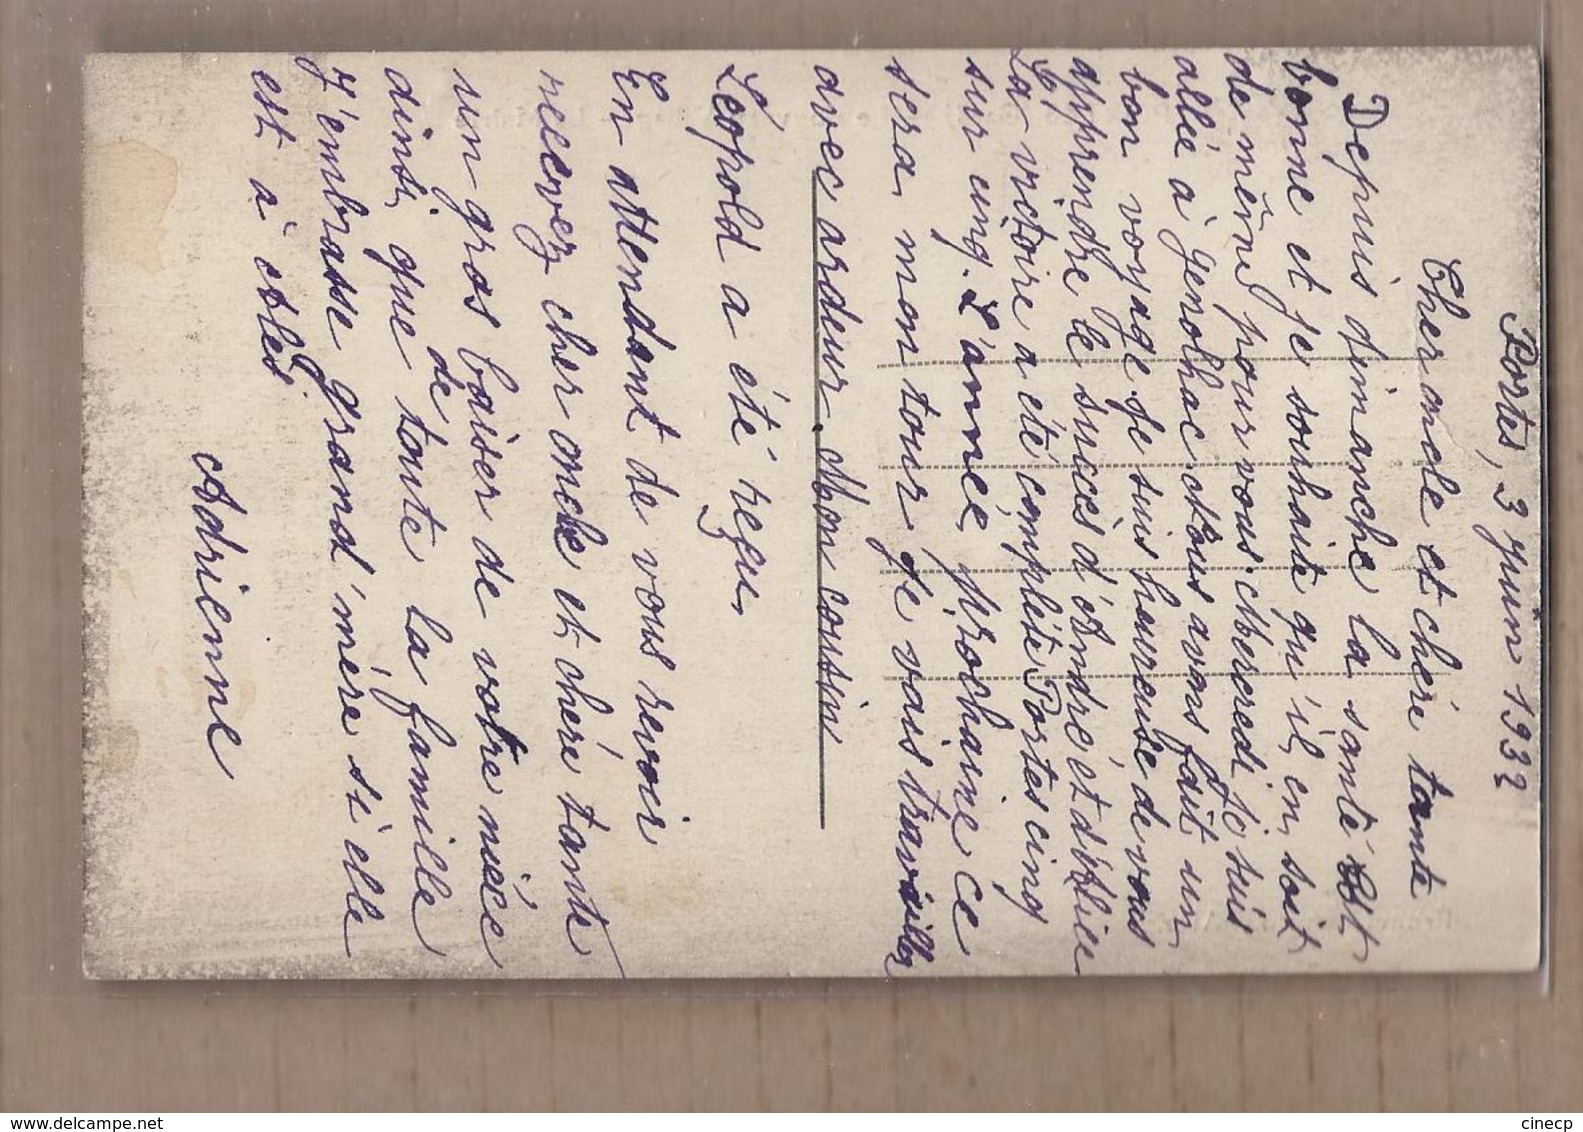 Portes, 3 juin 1932
Cher oncle et chère tante
Depuis dimanche la santé est
bonne et je souhaite qu'il en soit
de même pour vous. Mercredi je suis
allée à Genolhac. Nous avons fait un
bon voyage je suis heureuse de vous
apprendre le succès d'André et d'Elieu
La victoire a été complète Portes cinq
sur cinq. L'année prochaine ce
sera mon tour je vais travailler
avec ardeur. Mon cousin
Leopold a été reçu.
En attendant de vous revoir
recevez cher oncle et chère tante
un gros baiser de votre nièce
ainsi que de toute la famille
J'embrasse grand'mère si elle
est à Alès
Adrienne
www.delcampe.net
cinecp